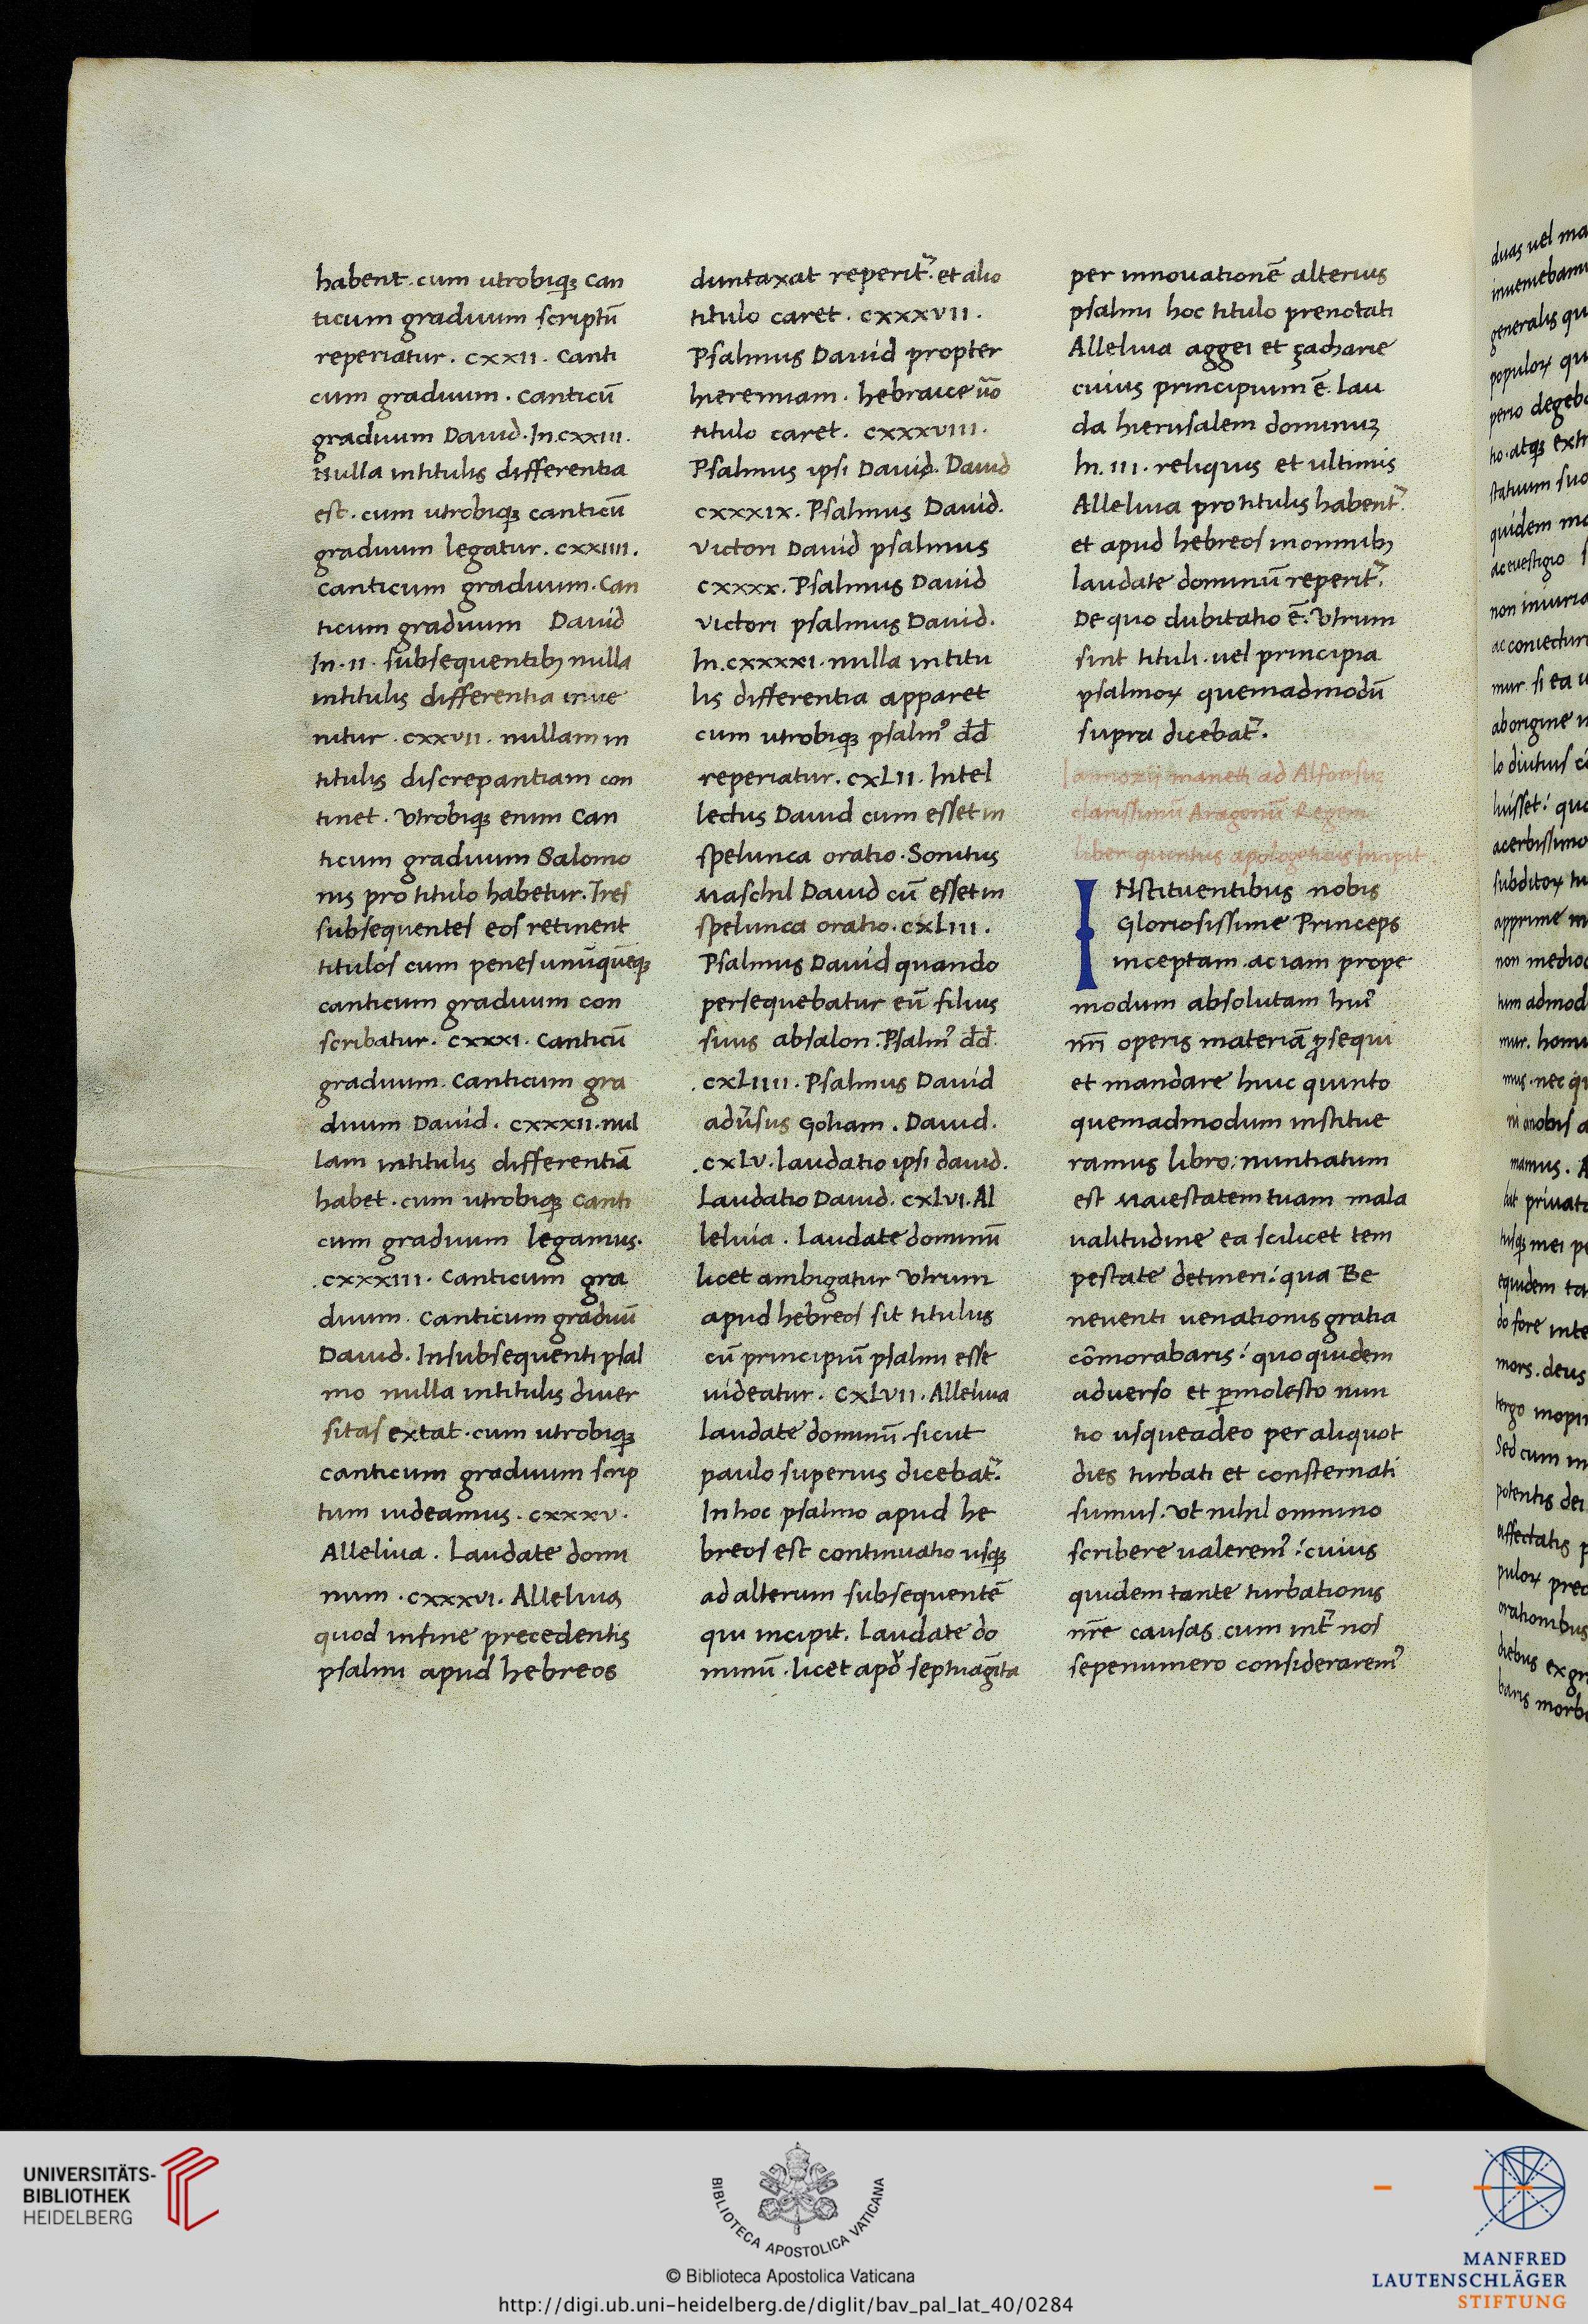 habent. cum utrobiqꝫ can
ticum graduum scriptū
reperiatur. cxxii. canti
cum graduum. canticū
graduum David. In. cxxiii.
Nulla in titulis differentia
est. cum utrobiqꝫ canticū
graduum legatur. cxxiiii.
canticum graduum. Can
ticum graduum David
In. ii. subsequentibꝫ nulla
in titulis differentia inue
nitur. cxxvii. nullam in
titulis discrepantiam con
tinet. Utrobiqꝫ enim Can
ticum graduum Salomo
nis pro titulo habetur. Tres
subsequentes eos retinent
titulos cum penes unūquēqꝫ
canticum graduum con
scribatur. cxxxi. Canticū
graduum. Canticum gra
duum David. cxxxii. nul
lam in titulis differentiā
habet. cum utrobiqꝫ Canti
cum graduum legamus.
.cxxxiii. Canticum gra
duum. Canticum graduū
David. In subsequenti psal
mo nulla in titulis diver
sitas extat. cum utrobiqꝫ
canticum graduum scrip
tum uideamus. cxxxv.
Alleluia. Laudate domi
num. cxxxvi. Alleluia
quod in fine precedentis
psalmi apud hebreos
duntaxat reperit᷑. et alio
titulo caret. cxxxvii.
Psalmus David propter
hieremiam. hebraice ūo
titulo caret. cxxxviii.
Psalmus ipsi David. David
cxxxix. Psalmus David.
Victori David psalmus
cxxxx. Psalmus David
Victori psalmus David.
In. cxxxxi. nulla in titu
lis differentia apparet
cum utrobiqꝫ psalmꝰ dd̄
reperiatur. cxLii. Intel
lectus David cum esset in
spelunca oratio. Sonitus
Maschil David cū esset in
spelunca oratio. cxLiii.
Psalmus David quando
persequebatur eū filius
suus absalon. Psalmꝰ dd̄.
.cxLiiii. Psalmus David
adu᷑sus Goliam. David.
.cxLv. laudatio ipsi david.
Laudatio David. cxLvi. Al
leluia. Laudate dominū
licet ambigatur Utrum
apud hebreos sit titulus
cū principiū psalmi esse
uideatur. CxLvii. Alleluia
laudate dominū. sicut
paulo superius dicebat᷑.
In hoc psalmo apud he
breos est continuatio usqꝫ
ad alterum subsequentē
qui incipit. Laudate do
minū. licet apd̓ septuagīta
per innovationē alterius
psalmi hoc titulo prenotati
Alleluia aggei et çacharie
cuius principium ē. Lau
da hierusalem dominuꝫ
In. iii. reliquis et ultimis
Alleluia pro titulis habent᷑.
et apud hebreos in omnibꝫ
laudate dominū reperit᷑.
De quo dubitatio ē. Utrum
sint tituli. vel principia
psalmoꝝ quemadmodū
supra dicebat᷑.
Iannozii manetti ad Alfonsuꝫ
clarissimū Aragonū Regem
liber quintus apologeticus Incipit
INstituentibus nobis
Gloriosissime Princeps
inceptam. ac iam prope
modum absolutam huiꝰ
nr̄i operis materiā ꝓsequi
et mandare huic quinto
quemadmodum institue
ramus libro: nuntiatum
est Maiestatem tuam mala
ualitudine ea scilicet tem
pestate detineri: qua Be
neventi uenationis gratia
cōmorabaris: quo quidem
adverso et ꝑmolesto nun
tio usqueadeo per aliquot
dies turbati et consternati
sumus. Ut nihil omnino
scribere ualeremꝰ: cuius
quidem tante turbationis
nr̄e causas cum int᷑ nos
sepenumero considerаremꝰ
duas uel ma
inueniebam
generalis qu
populoꝝ qu
perio degeb
tio. atqꝫ ext
statuum suo
quidem m
ac evestigio
non iniuria
ac coniectur
mur. si ea u
ab origine
lo diutius
luisset: qu
acerbissimo
subditoꝝ tu
apprime
non medio
tum admod
mur. homi
mus. nec qu
ni a nobis a
mamus. A
bat privat
tusqꝫ mei p
equidem ta
do fore inte
mors. deus
tergo inopi
Sed cum
potentis dei
affectatis p
puloꝝ prec
orationibus
diebus ex gr
baris morb
UNIVERSITÄTS-
BIBLIOTHEK
HEIDELBERG
BIBLIOTECA APOSTOLICA VATICANA
© Biblioteca Apostolica Vaticana
http://digi.ub.uni-heidelberg.de/diglit/bav_pal_lat_40/0284
MANFRED
LAUTENSCHLÄGER
STIFTUNG